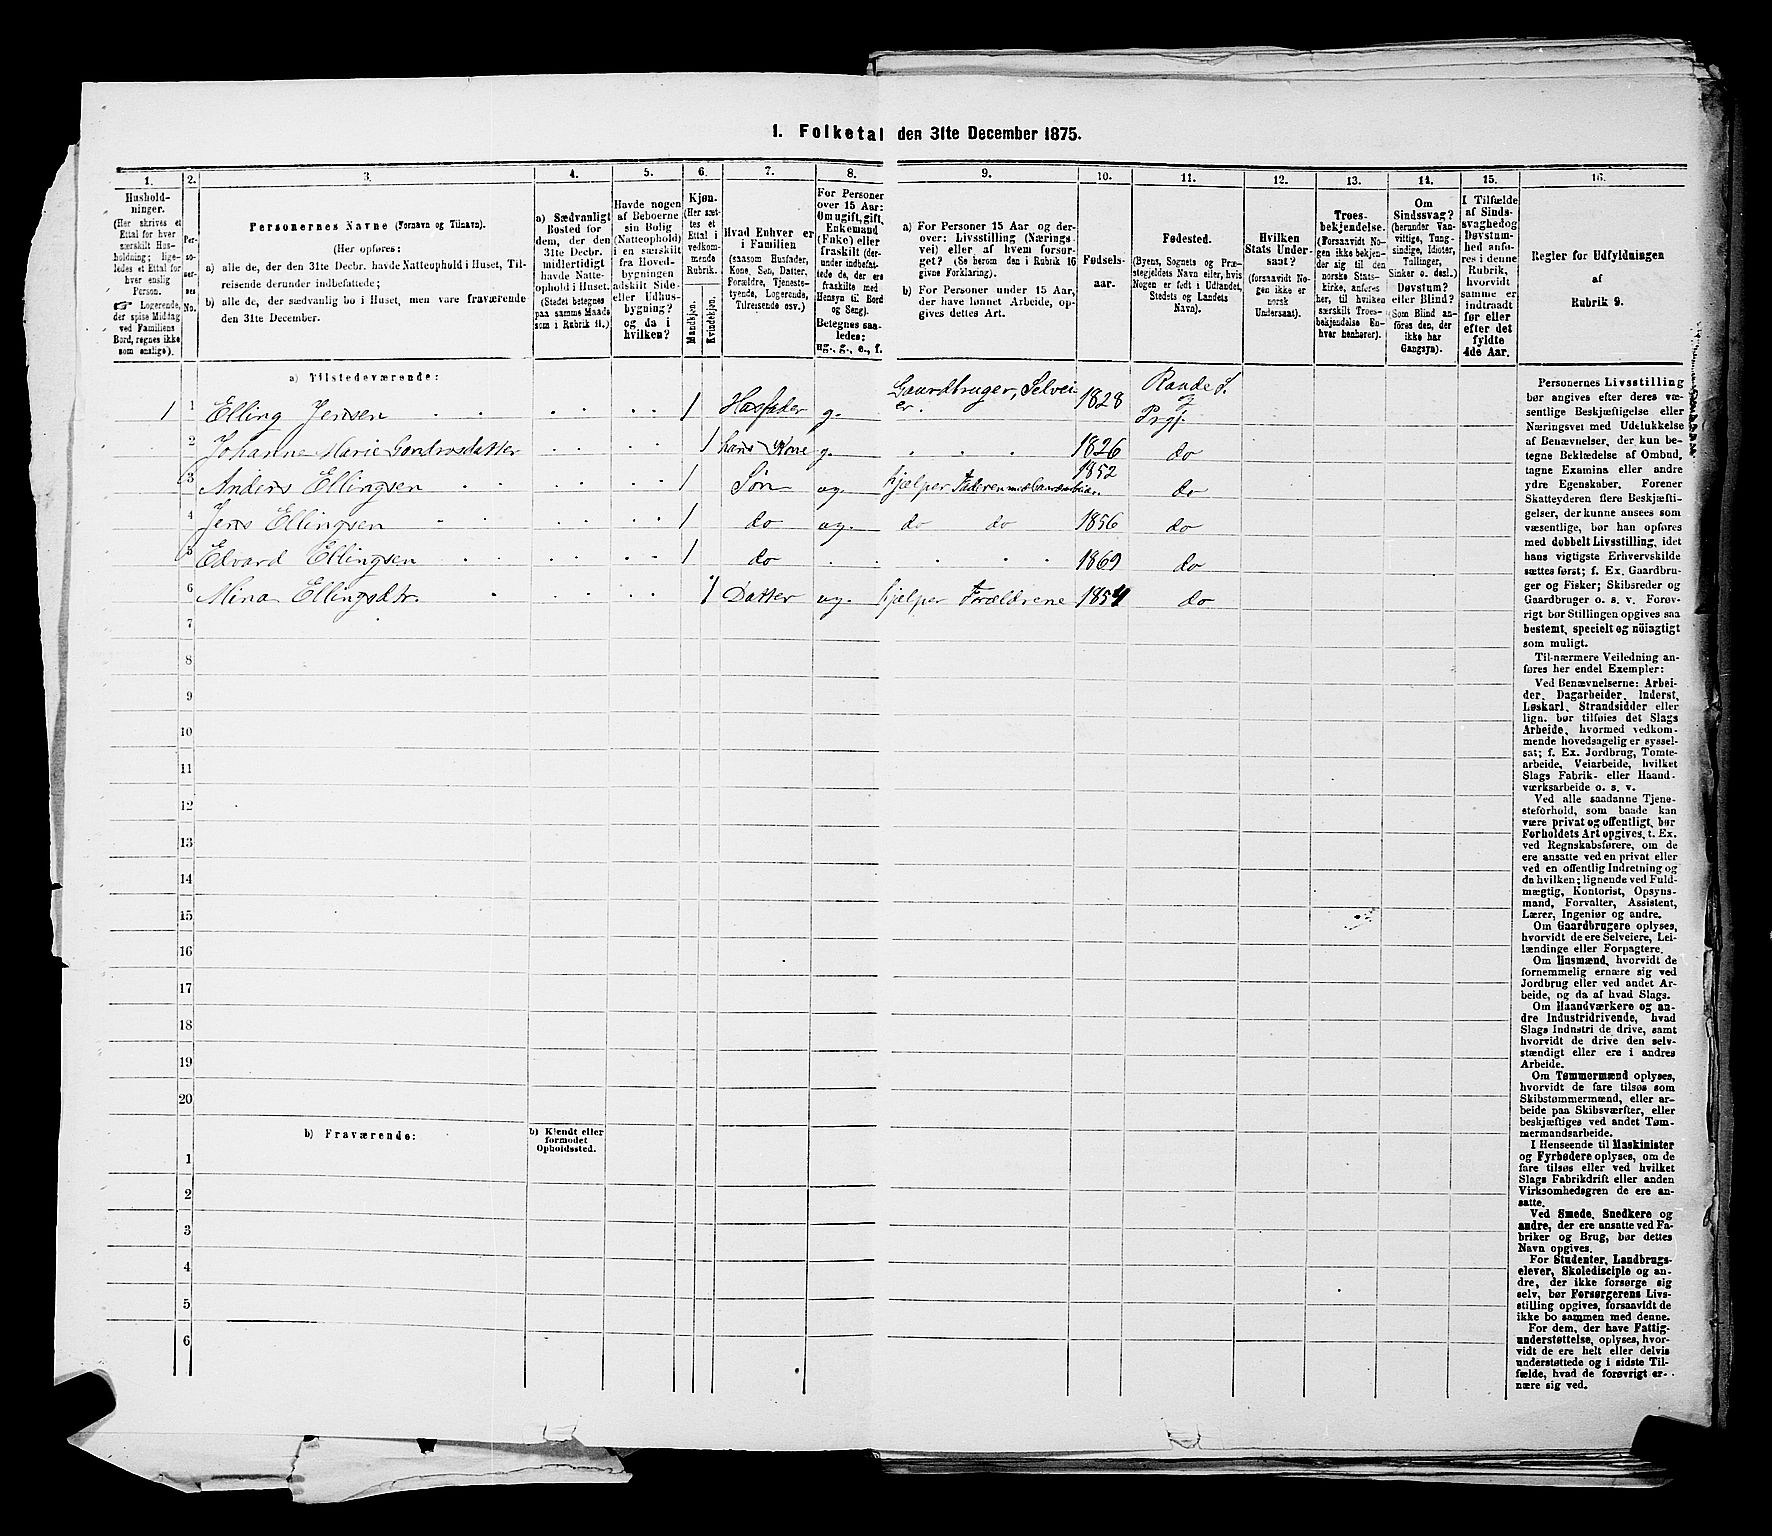 1. Folketal den 31te December 1875.
1.
2.
3.
4.
5.
6.
7.
8.
9.
10.
11.
12.
13.
14.
15.
16.
Hushold-
ninger.
(Her skrives et
Ettal for hver
særskilt Hus-
holdning; lige-
ledes et Ettal for
hver enslig
Person.
☞ Logerende,
der spise Middag
ved Familiens
Bord, regnes ikke
som enslige).
Per-
so-
ner-
nes
No.
Personernes Navne (Fornavn og Tilnavn).
(Her opføres:
a) alle de, der den 31te Decbr. havde Natteophold i Huset, Til-
reisende derunder indbefattede;
b) alle de, der sædvanlig bo i Huset, men vare fraværende
den 31te December.
a) Sædvanligt
Bosted for
dem, der den
31te Decbr.
midlertidigt
havde Natte-
ophold i Huset.
(Stedet betegnes
paa samme Maade
som i Rubrik 11.)
Havde nogen
af Beboerne
sin Bolig
(Natteophold)
i en særskilt
fra Hoved-
bygningen
adskilt Side-
eller Udhus-
bygning?
og da i
hvilken?
Kjøn.
(Her sæt-
tes et
Ettal i
vedkom-
mende
Rubrik.
Mandkjøn.
Kvindekjøn.
Hvad Enhver er
i Familien
(saasom Husfader,
Kone, Søn, Datter,
Forældre, Tjeneste-
tyende, Logerende,
Tilreisende osv.)
For Personer
over 15 Aar:
Om ugift, gift,
Enkemand
(Enke) eller
fraskilt (der-
under indbefat-
tede de, der ere
fraskilte med
Hensyn til Bord
og Seng).
Betegnes saa-
ledes:
ug., g., e., f.
a) For Personer 15 Aar og der-
over: Livsstilling (Nærings-
vei) eller af hvem forsør-
get? (Se herom den i Rubrik 16
givne Forklaring).
b) For Personer under 15 Aar,
der have lønnet Arbeide, op-
gives dettes Art.
Fødsels-
aar.
Fødested.
(Byens, Sognets og Præ-
stegjeldets Navn eller, hvis
Nogen er født i Udlandet,
Stedets og Landets
Navn).
Hvilken
Stats Under-
saat?
(forsaavidt No-
gen ikke er
norsk
Undersaat).
Troes-
bekjendelse.
(Forsaavidt No-
gen ikke bekjen-
der sig til den
norske Stats-
kirke, anføres
her, til hvilken
særskilt Troes-
bekjendelse En-
hver henhører).
Om
Sindssvag?
(herunder Van-
vittige, Tung-
sindige, Idioter,
Tullinger,
Sinker o. desl.)
Døvstum?
eller Blind?
(Som Blind an-
føres den, der
ikke har
Gangsyn).
I Tilfælde
af Sinds-
svaghed og
Døvstum-
hed anfø-
res i denne
Rubrik,
hvorvidt
samme er
indtraadt
før eller
efter det
fyldte
4de Aar.
Regler for Udfyldningen
af
Rubrik 9.
a) Tilstedeværende:
1 1 Elling Jensen 1 Husfader g. Gaardbruger, Selvei
er. 1828 Rande S.
Prgj.
2 Johanne Marie 1 hans Kone g. 1826 do
3 Anders Ellingsen 1 Søn ug. hjælper Faderen med Gaardsarbeide. 1852 do
4 Jens Ellingsen 1 do ug. do do 1856 do
5 Edvard Ellingsen 1 do 1869 do
6 Mina Ellingsdtr. 1 Datter ug. hjælper Forældrene 1854 do
7
8
9
10
11
12
13
14
15
16
17
18
19
20
b) Fraværende:
b) Kjendt eller
formodet
Opholdssted.
1
2
3
4
5
6
Personernes Livsstilling
bør angives efter deres væ-
sentlige Beskjæftigelse eller
Næringsvei med Udelukkelse
af Benævnelser, der kun be-
tegne Beklædelse af Ombud,
tagne Examina eller andre
ydre Egenskaber. Forener
Skatteyderen flere Beskjæfti-
gelser, der kunne ansees som
væsentlige, bør han opføres
med dobbelt Livsstilling, idet
hans vigtigste Erhvervskilde
sættes først; f. Ex. Gaardbru-
ger og Fisker; Skibsreder og
Gaardbruger o. s. v. Forøv-
rigt bør Stillingen opgives saa
bestemt, specielt og nöiagtigt
som muligt.
Til nærmere Veiledning an-
føres her endel Exempler:
Ved Benævnelserne: Arbei-
der, Dagarbeider, Inderst,
Løskarl, Strandsidder eller
lign. bør tilføies det Slags
Arbeide, hvormed vedkom-
mende hovedsagelig er syssel-
sat; f. Ex. Jordbrug, Tomte-
arbeide, Veiarbeide, hvilket
Slags Fabrik- eller Haand-
værksarbeide o. s. v.
Ved alle saadanne Tjene-
steforhold, som baade kan
være privat og offentligt, bør
Forholdets Art opgives, t. Ex.
ved Regnskabsførere, om de
ere ansatte ved en privat eller
ved en offentlig Indretning og
da hvilken; lignende ved Fuld-
mægtig, Kontorist, Opsyns-
mand, Forvalter, Assistent,
Lærer, Ingeniør og andre.
Om Gaardbrugere oplyses,
hvorvidt de ere Selveiere, Lei-
lændinge eller Forpagtere.
Om Husmænd, hvorvidt de
fornemmelig ernære sig ved
Jordbrug eller ved andet Ar-
beide, og da af hvad Slags.
Om Haandværkere og an-
dre Industridrivende, hvad
Slags Industri de drive, samt
hvorvidt de drive den selv-
stændigt eller ere i andres
Arbeide.
Om Tømmermænd oplyses,
hvorvidt de fare tilsøs som
Skibstømmermænd, eller ar-
beide paa Skibsværfter, eller
beskjæftiges ved andet Tøm-
mermandsarbeide.
I Henseende til Maskinister
og Fyrbødere oplyses, om de
fare tilsøs eller ved hvilket
Slags Fabrikdrift eller anden
Virksomhedsgren de ere an-
satte.
Ved Smede, Snedkere og
andre, der ere ansatte ved Fa-
briker og Brug, bør dettes
Navn opgives.
For Studenter, Landbrugs-
elever, Skoledisciple og an-
dre, der ikke forsørge sig
selv, bør Forsørgerens Livs-
stilling opgives, forsaavidt de
ikke bo sammen med denne.
For dem, der have Fattig-
understøttelse, oplyses, hvor-
vidt de ere helt eller delvis
understøttede og i sidste Til-
fælde, hvad de forøvrigt er-
nære sig ved.